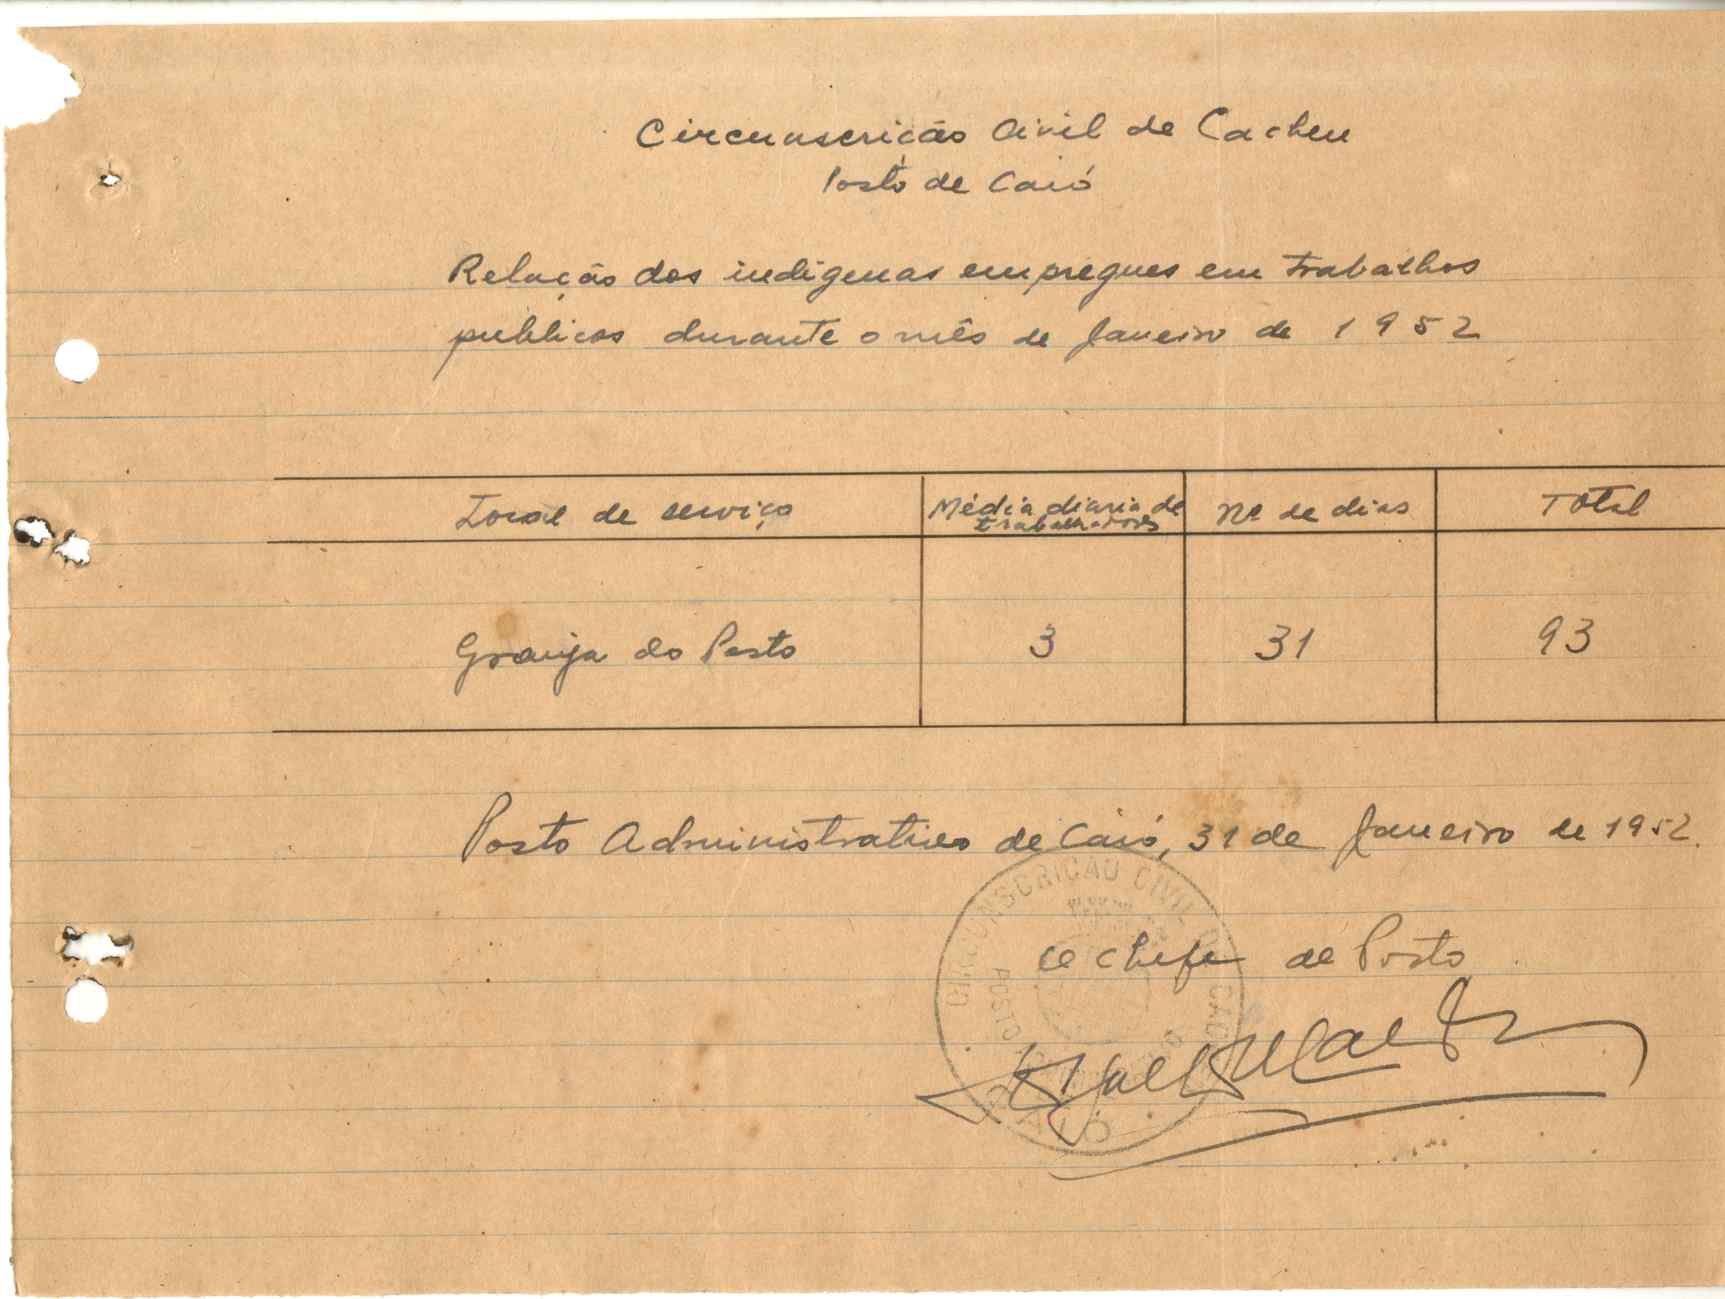 Circunscricão Civil de Cacheu
Posto de Caió
Relação dos indígenas empregues em trabalhos
publicos durante o mês de Janeiro de 1952
Local de serviço
Média diaria de
trabalhadores
Nº de dias
Total
Granja do Posto
3
31
93
Posto Administrativo de Caió, 31 de Janeiro de 1952.
CIRCUNSCRICAO CIVIL DE CACHEU
POSTO
CAIÓ
O Chefe de Posto